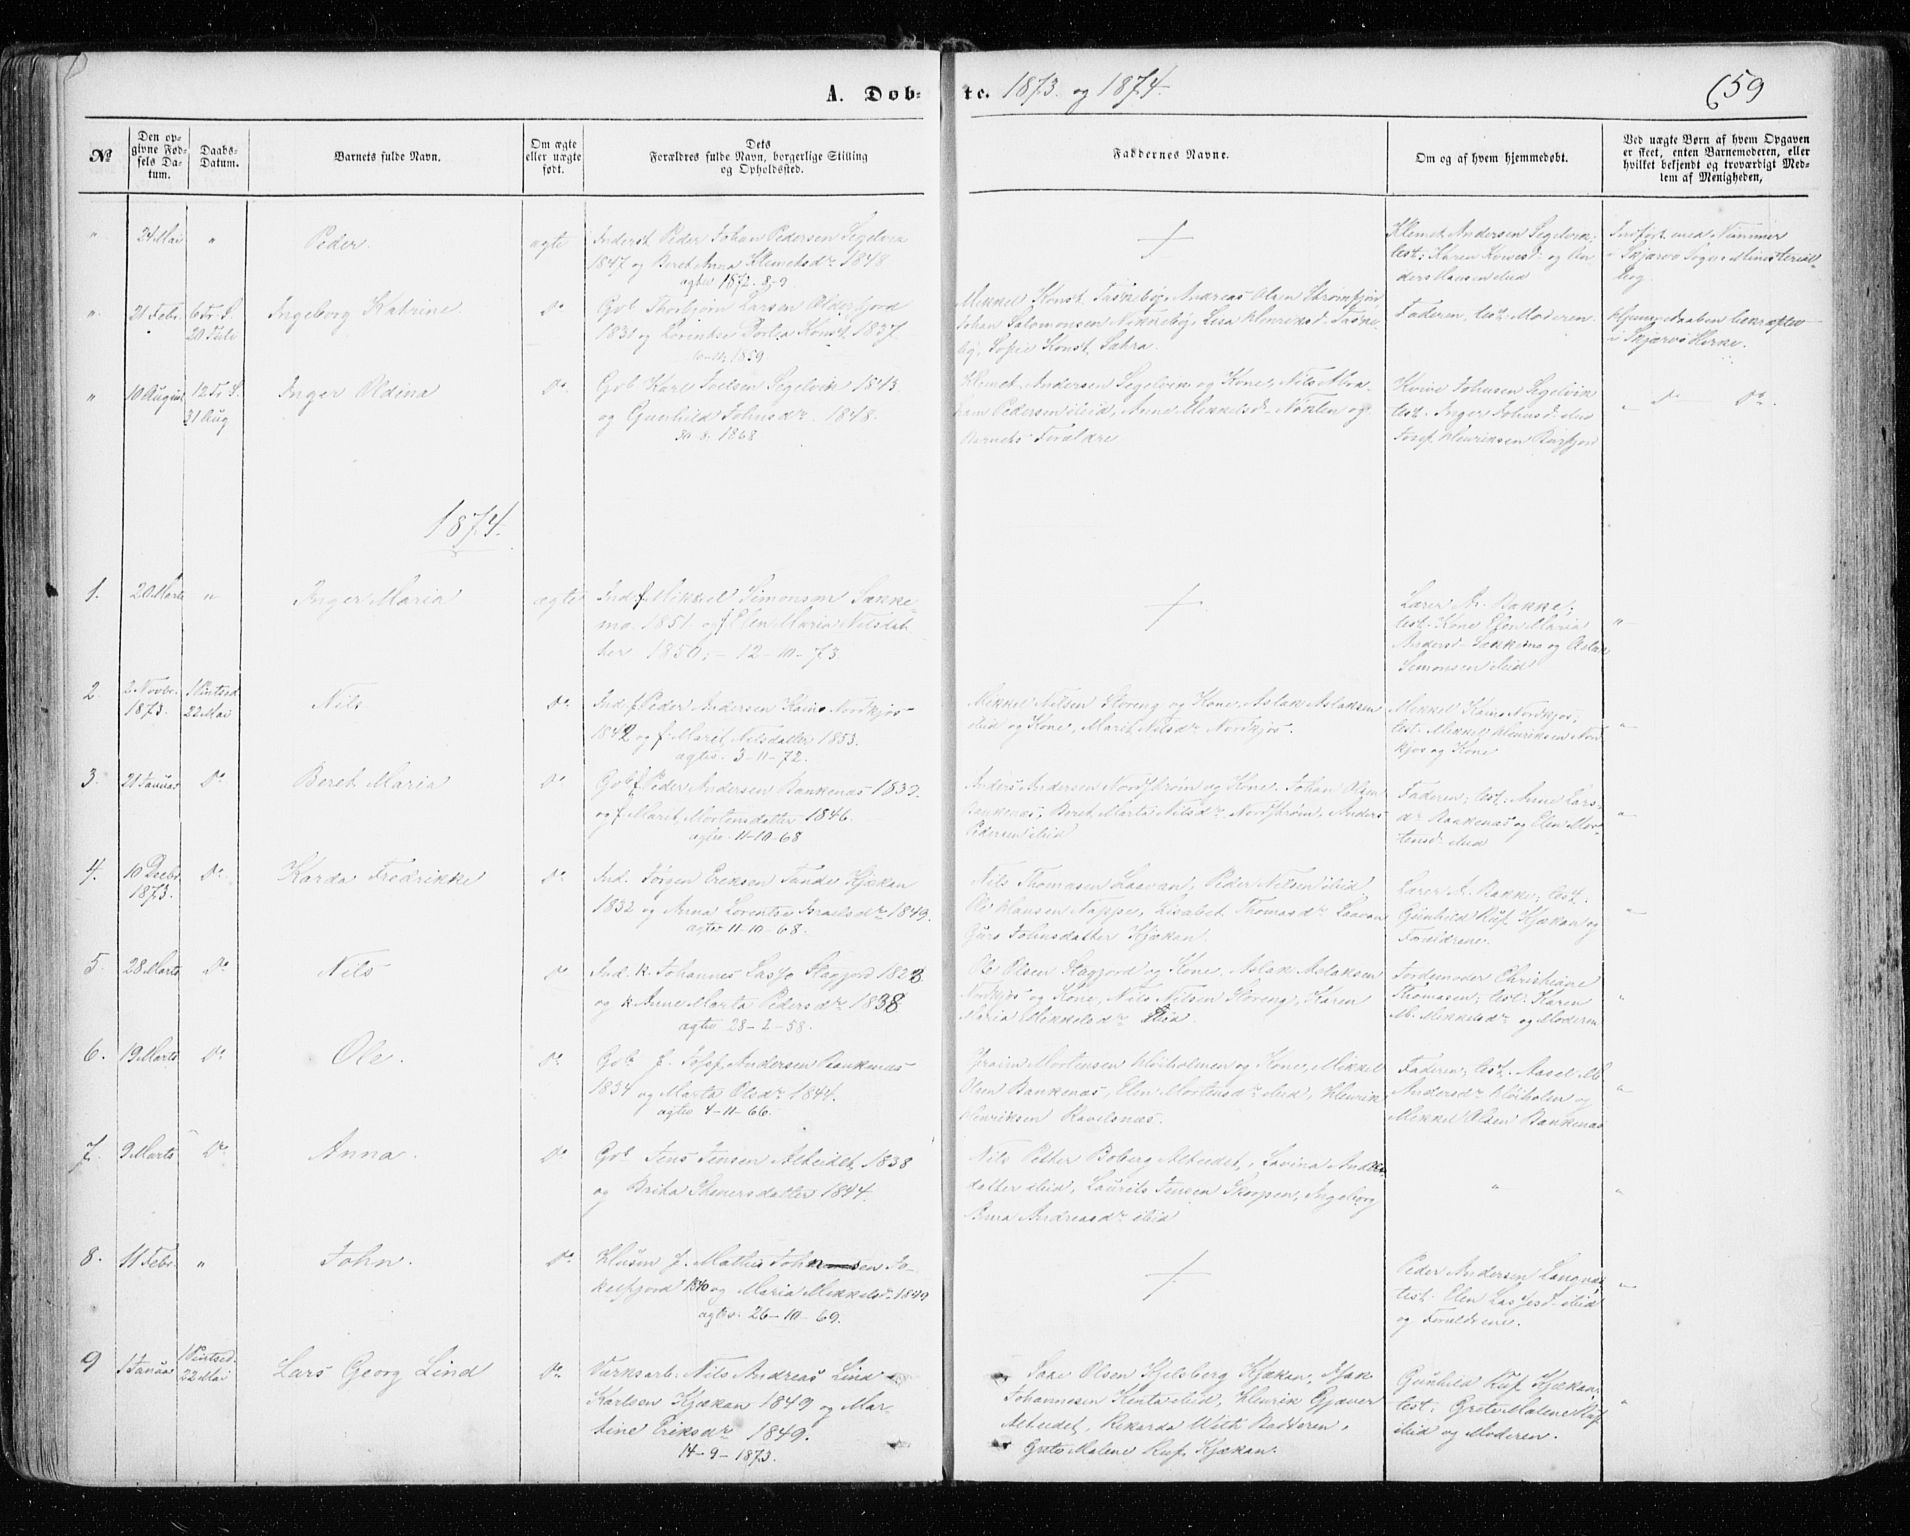 A. Dobte. 1873 og 1874.
659
№
Den opgivne Fødsels Datum.
Daabs-Datum.
Barnets fulde Navn.
Om ægte eller uægte født.
Dets Forældres fulde Navn, borgerlige Stilling og Opholdssted.
Faddernes Navne.
Om og af hvem hjemmedøbt.
Ved uægte Børn af hvem Opgaven er skeet, enten Barnemoderen, eller hvilket bekjendt og troværdigt Medlem af Menigheden,
" 24 Mai " Peder. ægte
Inderst Peder Johan Pedersen Segelvik
1847 og Beret Anna Klemetsdr 1848
agtev 1872-8-9
Klemet Andersen Segelvik;
test: Karen og An-
ders Hansen ibid
Indført med Nummer
i Skjærvø Sogns Ministerial-
bog.
" 21 Febr. 6 Tr. S. 20 Juli Ingeborg Katrine. Do
Gbr Thorbjørn Larsen Olderfjord
1831 og Lorentse Dortea Konst. 1837.
1859
Mikkel Konst. Taskeby, Andreas Olsen Strømfjord,
Johan Salomonsen Nikkeby, Lisa Henriksd. Taske-
by, Sofie Konst. Sætra.
Faderen, test: Moderen.
Hjemmedaaben bekræftet
i Skjærvø Kirke.
" 10 August 12 Tr. S. 31 Aug Inger Oldina Do
Gbr Karl Joelsen Segelvik 1843
og Gunhild Johnsdr. 1848.
30-8-1868
Klemet Andersen Segelvik og Kone, Nils Abra-
ham Pedersen ibid, Anne Mikkelsdr og
Barnets Forældre
Johnsen Segelvik
test: Inger Johnsd. ibid
Josef Henriksen Burfjord
" Do Do.
1874.
1. 20 Marts " Inger Maria ægte
Ind. f Mikkel Simonsen Sakke-
mo. 1851. og f Elen Maria Nilsdat-
ter 1850,- 12-10-73
Lærer A. Bakke;
test: Kone Elen Maria
Andersd. Sakkemo og Aslak
Simonsen ibid
"
2. 2 Novbr. 1873. 1 Pintsed 22 Mai Nils Do.
Ind. f Peder Andersen Kaino Nordkjos
1842 og f Maret Nilsdatter 1853.
agtev. 3-11-72.
Mikkel Nilsen Storeng og Kone, Aslak Aslaksen
ibid og Kone, Marit Nilsdr Nordkjos.
Mikkel Kaino Nordkjos;
test: Mikkel Henriksen Nord-
kjos og Kone
"
3. 21 Januar Do Beret Maria Do
Gbr f Peder Andersen Bankenæs 1832.
og f Marit Mortensdatter 1846.
agtev 11-10-68
Anders Andersen Nordstrøm og Kone. Johan Olsen
Bankenæs, Beret Marta Nilsdr Nordstrøm, Anders
Pedersen ibid
Faderen; test: Anne Lars-
dr Bankenæs og Elen Mor-
tensd. ibid
"
4. 10 Decbr 1873. Do. Karda Fredrikke Do
Ind. Jørgen Eriksen Tande Kjækan
1832 og Anna Lorentse Israelsdr 1849.
agtev 11-10-68.
Nils Thomasen Laavan, Peder Nilsen ibid.
Ole Hansen Nappe, Lisabet Thomasdr Laavan
Guro Johnsdatter Kjækan.
Lærer A. Bakke; test:
Gunhild Ruf Kjækan og
Forældrene.
"
5. 28 Marts Do Nils Do
Ind. K. Johannes Lasse Slagfjord 1823
og K. Anne Marta Pedersdr 1838
agtev 28-2-58.
Ole Olsen Slagfjord og Kone, Aslak Aslaksen
Nordkjos og Kone, Nils Nilsen Storeng, Karen
Maria Mikkelsdr ibid.
Jordemoder Christiane
Thomasen; test: Karen
M. Mikkelsdr og Moderen
"
6. 19 Marts Do Ole. Do
Gbr f. Andersen Bankenæs
1834 og Marta Olsdr 1844.
agtev 4-11-66.
Mortensen Høiholmen og Kone, Mikkel
Olsen Bankenæs, Elen Mortensdr ibid, Henrik
Henriksen Ravelsnæs.
Faderen; test: M.
Andersdr Høiholm og
Mikkel Olsen Bankenæs
"
7. 9 Marts Do Anna. Do
Gbr Jens Jensen Alteidet, 1838
og Brita Iversdatter 1844.
Nils Petter Boberg Alteidet, Lovina Anders-
datter ibid, Laurits Jensen Skorpen, Ingeborg
Anna Andreasdr ibid
"
"
8. 11 Febr. " John. Do.
Husm f. Mathis Johnsen Jo-
kelfjord 1840 og Maria Mikkelsd. 1849
agtev. 26-10-69.
Peder Andersen Langnæs;
test: Elen ibid
og Forældrene.
"
9 1 Januar 1 Pintsed. 22 Mai Lars Georg Lind Do
Værksarb. Nils Andreas Lind
Karlsen Kjækan 1849 og Mar-
tine Eriksdr 1849.
14-9-1873.
Olsen Hjelsberg Kjækan,
Johannesen Kenta ibid, Henrik Gjæver
Alteidet, Rikarda With Badderen,
Grete Malene Ruf Kjækan.
Gunhild Ruf Kjækan;
test: Grete Malene Ruf
ibid og Moderen.
"